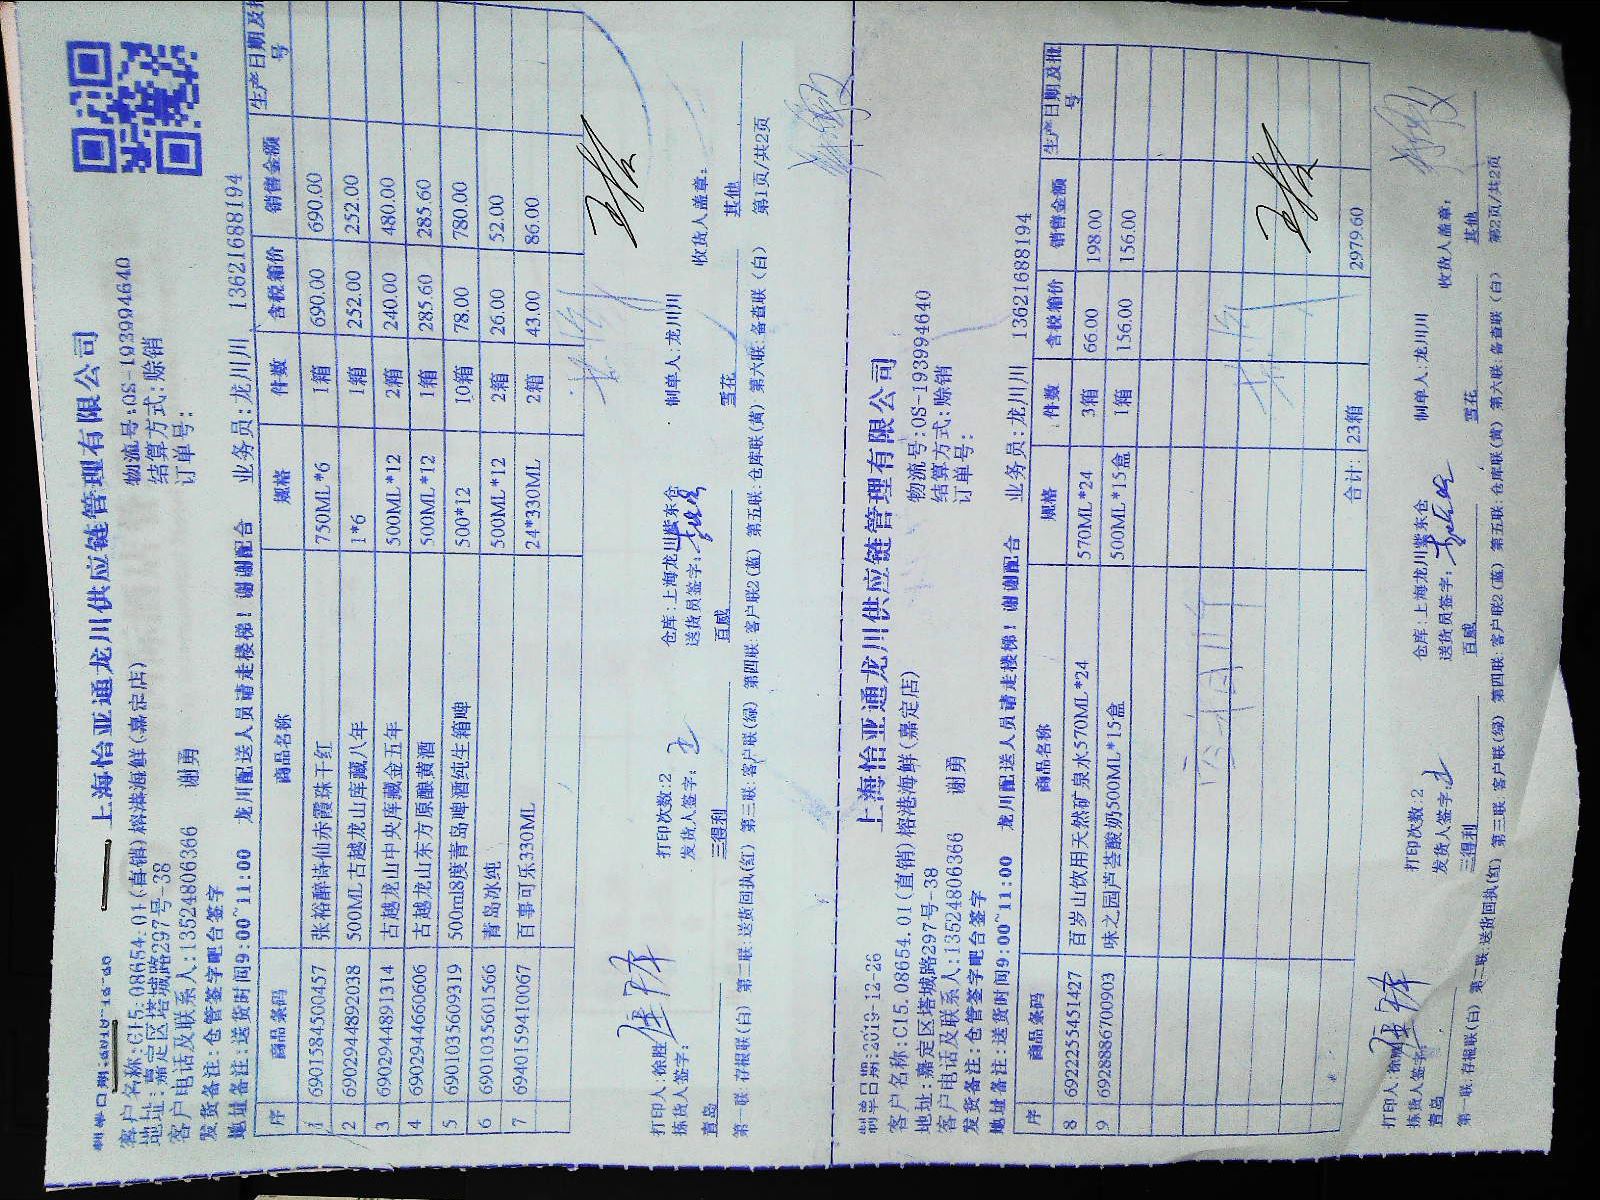 上海怡亚通龙川供应链管理有限公司
制单日期:
物流号:OS-193994640
客户名称:C15.08654.01(直销)榕港海鲜(嘉定店)
结算方式:赊销
地址:嘉定区塔城路297号-38
订单号:
客户电话及联系人:13524806366 谢勇
发货备注:仓管签字吧台签字
业务员:龙川川 13621688194
地址备注:送货时间9:00~11:00 龙川配送人员请走楼梯!谢谢配合
序 商品条码 商品名称 规格 件数 含税箱价 销售金额 生产日期及批号
1 6901584500457 张裕醉诗仙赤霞珠干红 750ML*6 1箱 690.00 690.00
2 6902944892038 500ML古越龙山库藏八年 1*6 1箱 252.00 252.00
3 6902944891314 古越龙山中央库藏金五年 500ML*12 2箱 240.00 480.00
4 6902944660606 古越龙山东方原酿黄酒 500ML*12 1箱 285.60 285.60
5 6901035609319 500ml8度青岛啤酒纯生箱啤 500*12 10箱 78.00 780.00
6 6901035601566 青岛冰纯 500ML*12 2箱 26.00 52.00
7 6940159410067 百事可乐330ML 24*330ML 2箱 43.00 86.00
打印人:徐胜 打印次数:2 仓库:上海龙川紫东仓 制单人:龙川川 收货人盖章:
拣货人签字: 发货人签字: 送货员签字:
青岛 三得利 百威 雪花 其他
第一联:存根联(白) 第二联:送货回执(红) 第三联:客户联(绿) 第四联:客户联2(蓝) 第五联:仓库联(黄) 第六联:备查联(白) 第1页/共2页
上海怡亚通龙川供应链管理有限公司
制单日期:2019-12-26
物流号:OS-193994640
客户名称:C15.08654.01(直销)榕港海鲜(嘉定店)
结算方式:赊销
地址:嘉定区塔城路297号-38
订单号:
客户电话及联系人:13524806366 谢勇
发货备注:仓管签字吧台签字
业务员:龙川川 13621688194
地址备注:送货时间9:00~11:00 龙川配送人员请走楼梯!谢谢配合
序 商品条码 商品名称 规格 件数 含税箱价 销售金额 生产日期及批号
8 6922255451427 百岁山饮用天然矿泉水570ML*24 570ML*24 3箱 66.00 198.00
9 6928886700903 味之园芦荟酸奶500ML*15盒 500ML*15盒 1箱 156.00 156.00
合计: 23箱 2979.60
打印人:徐胜 打印次数:2 仓库:上海龙川紫东仓 制单人:龙川川 收货人盖章:
拣货人签字: 发货人签字: 送货员签字:
青岛 三得利 百威 雪花 其他
第一联:存根联(白) 第二联:送货回执(红) 第三联:客户联(绿) 第四联:客户联2(蓝) 第五联:仓库联(黄) 第六联:备查联(白) 第2页/共2页